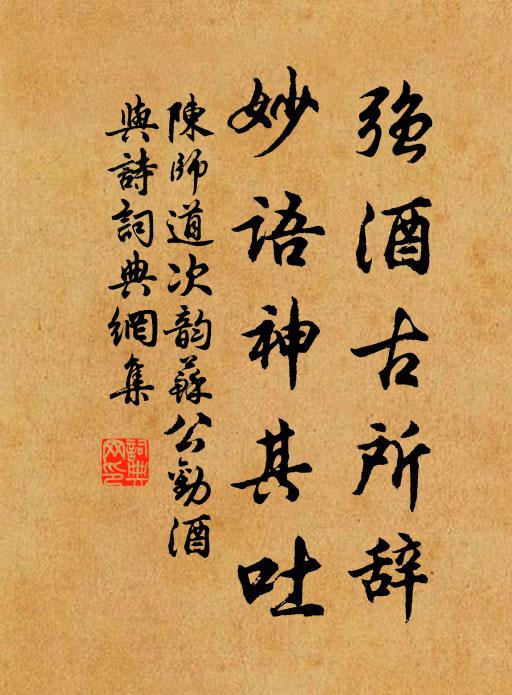 强酒古所辞
妙语神其吐
陳師道次韵蘇公勸酒
與詩詞典網集
詞典网印